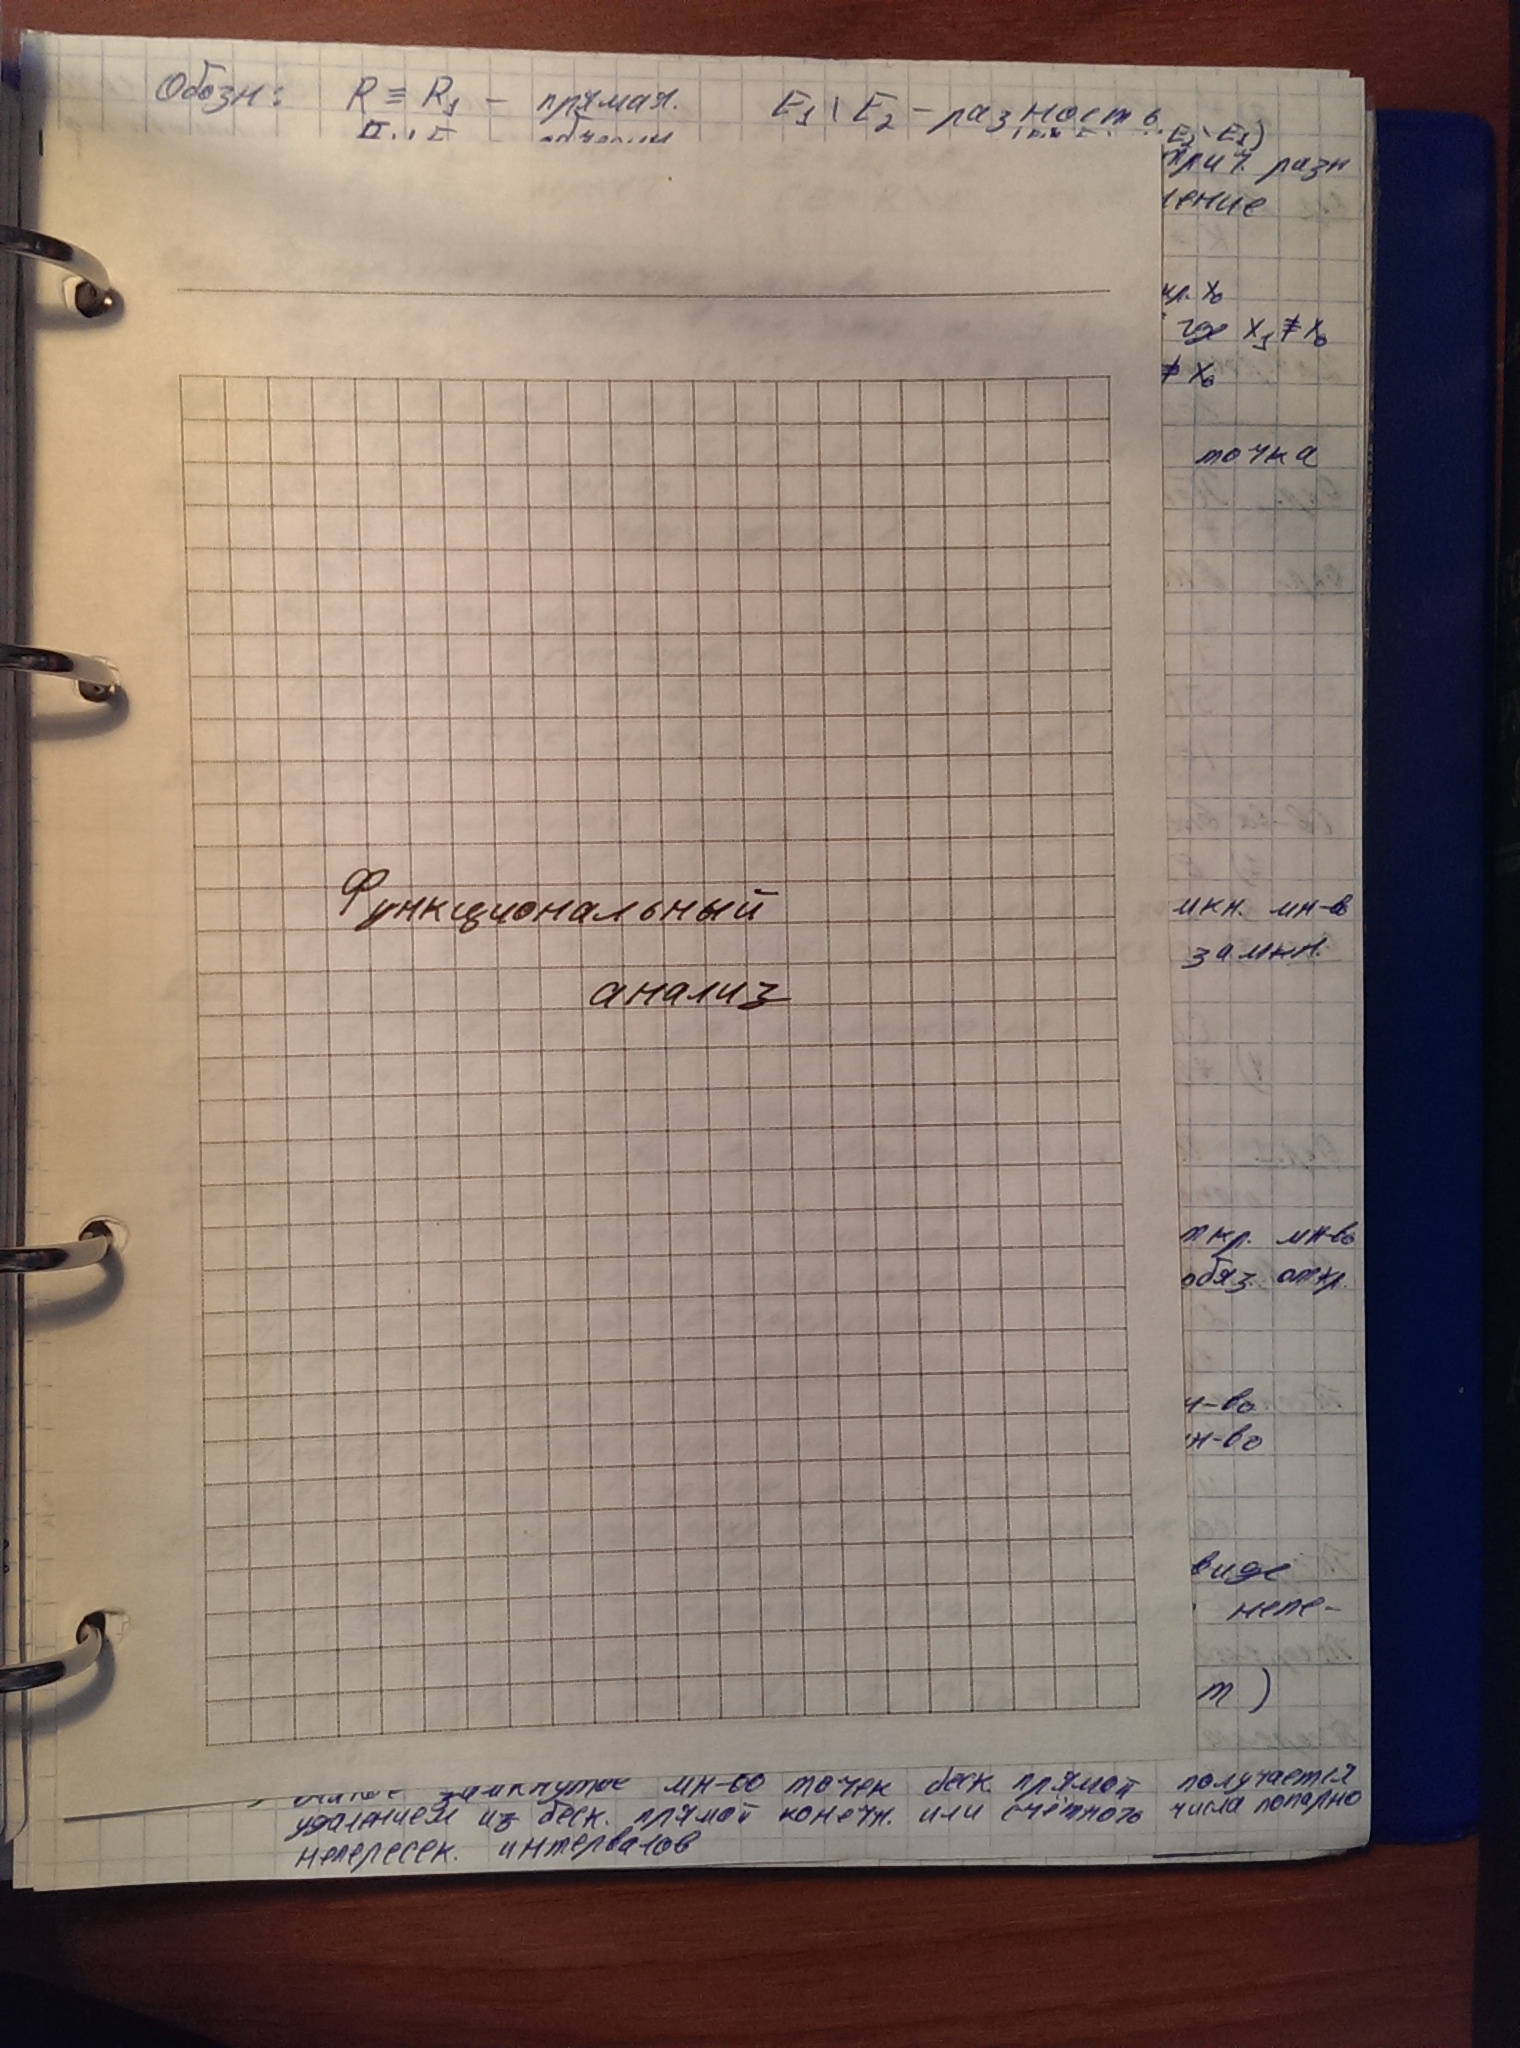 Обозн: R ≡ R₁ – прямая. E₁ \ E₂ – разность
E₂\E₁)
разн
x₀
где x₁ ≠ x₀
≠ x₀
точка
Функциональный
мн-в
анализ
замкн.
мн-во
обяз. откр.
виде
непе-
т)
замкнутое мн-во точек беск. прямой получается
удалением из беск. прямой конечн. или счётного числа попарно
непересек. интервалов